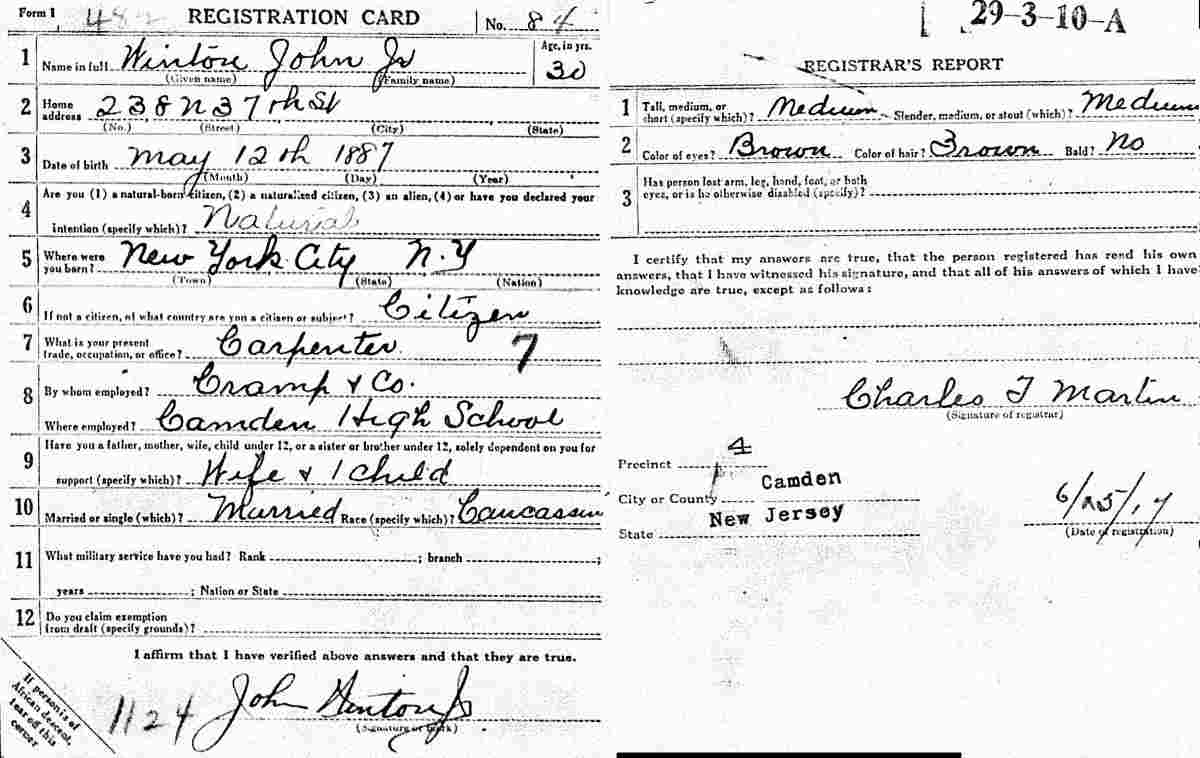 Form 1 REGISTRATION CARD No. 84
1 Name in full Winton John Jr Age, in yrs. 30
(Given name) (Family name)
2 Home address 238 N 37th St
(No.) (Street) (City) (State)
3 Date of birth May 12th 1887
(Month) (Day) (Year)
Are you (1) a natural-born citizen, (2) a naturalized citizen, (3) an alien, (4) or have you declared your
4 intention (specify which)? Natural
5 Where were you born? New York City N.Y
(Town) (State) (Nation)
6 If not a citizen, of what country are you a citizen or subject? Citizen
7 What is your present trade, occupation, or office? Carpenter 7
8 By whom employed? Cramp & Co.
Where employed? Camden High School
9 Have you a father, mother, wife, child under 12, or a sister or brother under 12, solely dependent on you for
support (specify which)? Wife & 1 Child
10 Married or single (which)? Married Race (specify which)? Caucassin
11 What military service have you had? Rank ; branch ;
years ; Nation or State
12 Do you claim exemption from draft (specify grounds)?
I affirm that I have verified above answers and that they are true.
1124 John Winton Jr
(Signature or mark)
If person is of
African descent,
tear off this
corner
29-3-10-A
REGISTRAR'S REPORT
1 Tall, medium, or short (specify which)? Medium Slender, medium, or stout (which)? Medium
2 Color of eyes? Brown Color of hair? Brown Bald? No
3 Has person lost arm, leg, hand, foot, or both
eyes, or is he otherwise disabled (specify)?
I certify that my answers are true, that the person registered has read his own
answers, that I have witnessed his signature, and that all of his answers of which I have
knowledge are true, except as follows:
Charles T Martin
(Signature of registrar)
Precinct 4
City or County Camden
State New Jersey
6/5/17
(Date of registration)